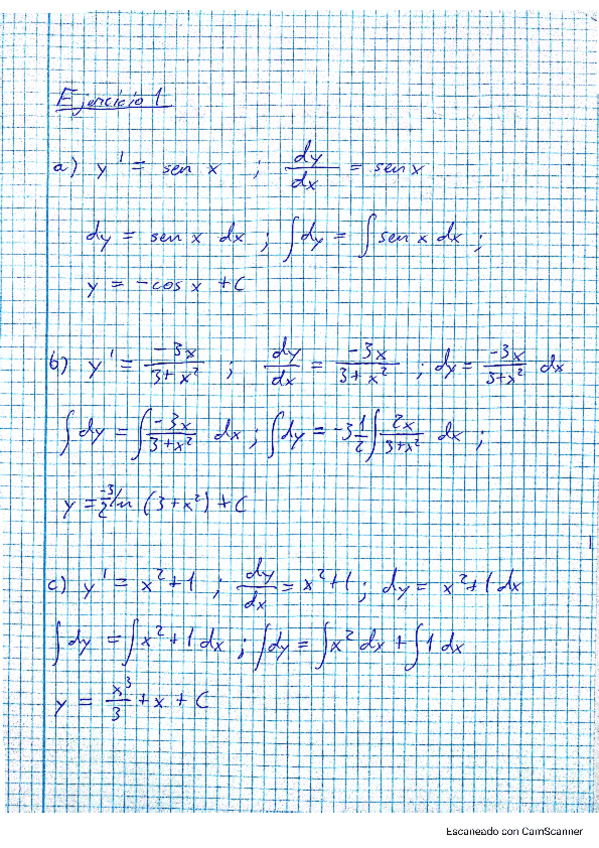 Ejercicio 1
a) y' = sen x ; dy/dx = sen x
dy = sen x dx ; ∫dy = ∫sen x dx ;
y = -cos x + C
b) y' = -3x/3+x² ; dy/dx = -3x/3+x² ; dy = -3x/3+x² dx
∫dy = ∫-3x/3+x² dx ; ∫dy = -3 1/2 ∫2x/3+x² dx ;
y = -3/2 ln (3+x²) + C
c) y' = x²+1 ; dy/dx = x²+1 ; dy = x²+1 dx
∫dy = ∫x²+1 dx ; ∫dy = ∫x² dx + ∫1 dx
y = x³/3 + x + C
Escaneado con CamScanner